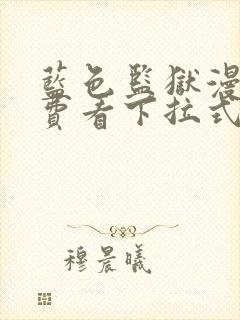 藍色監獄漫
費看下拉式
穆晨曦